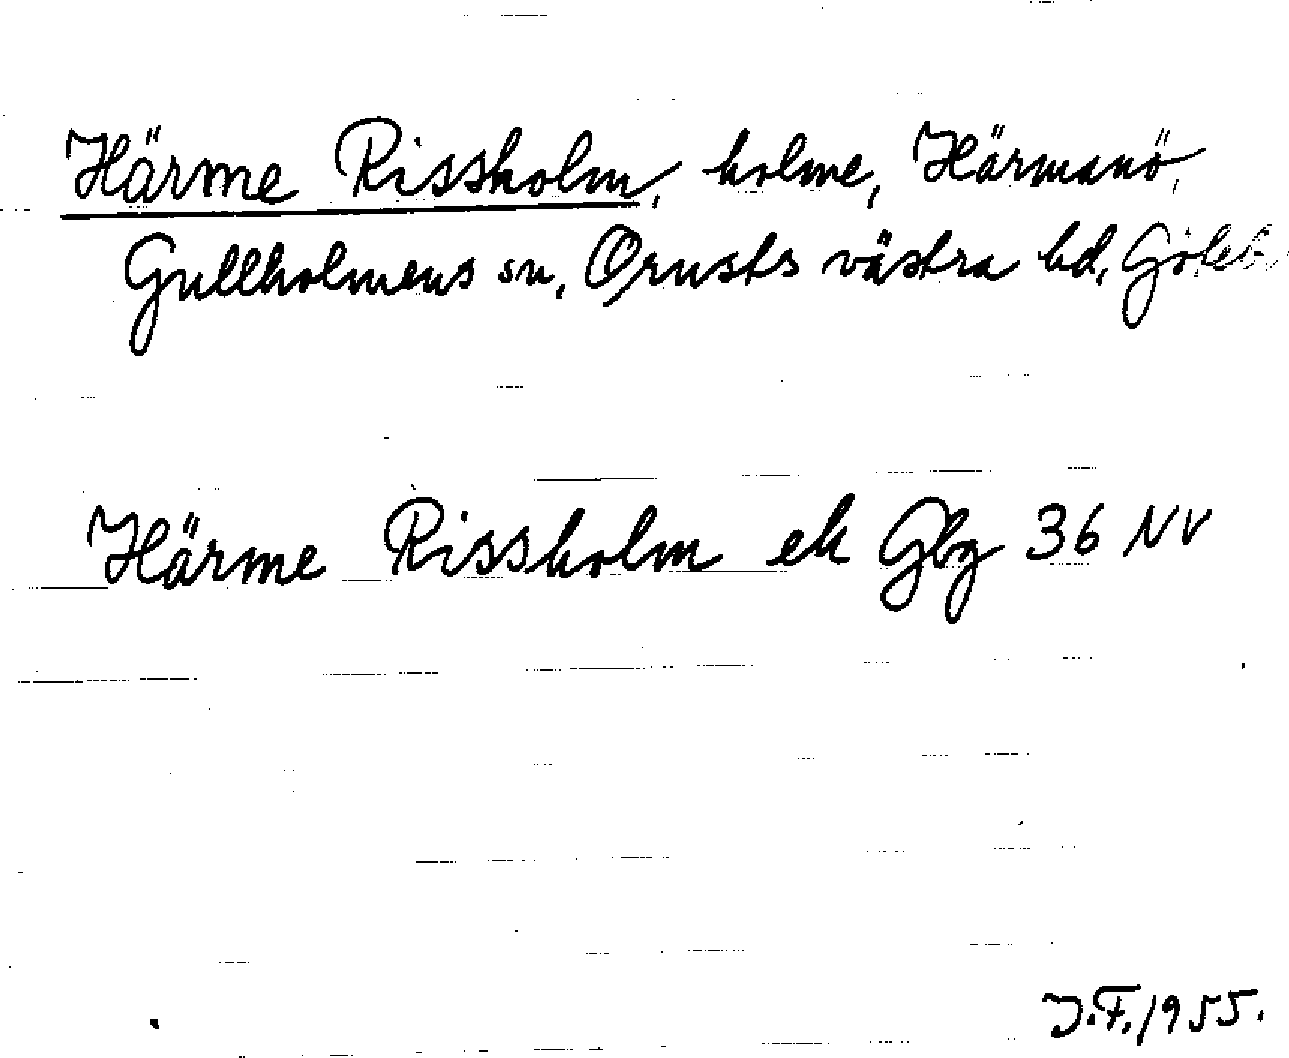 Härme Rissholm, holme, Härmanö,
Gullholmens sn, Orusts västra hd, Göteb
Härme Rissholm ek Gbg 36 NV
J.F. 1955.